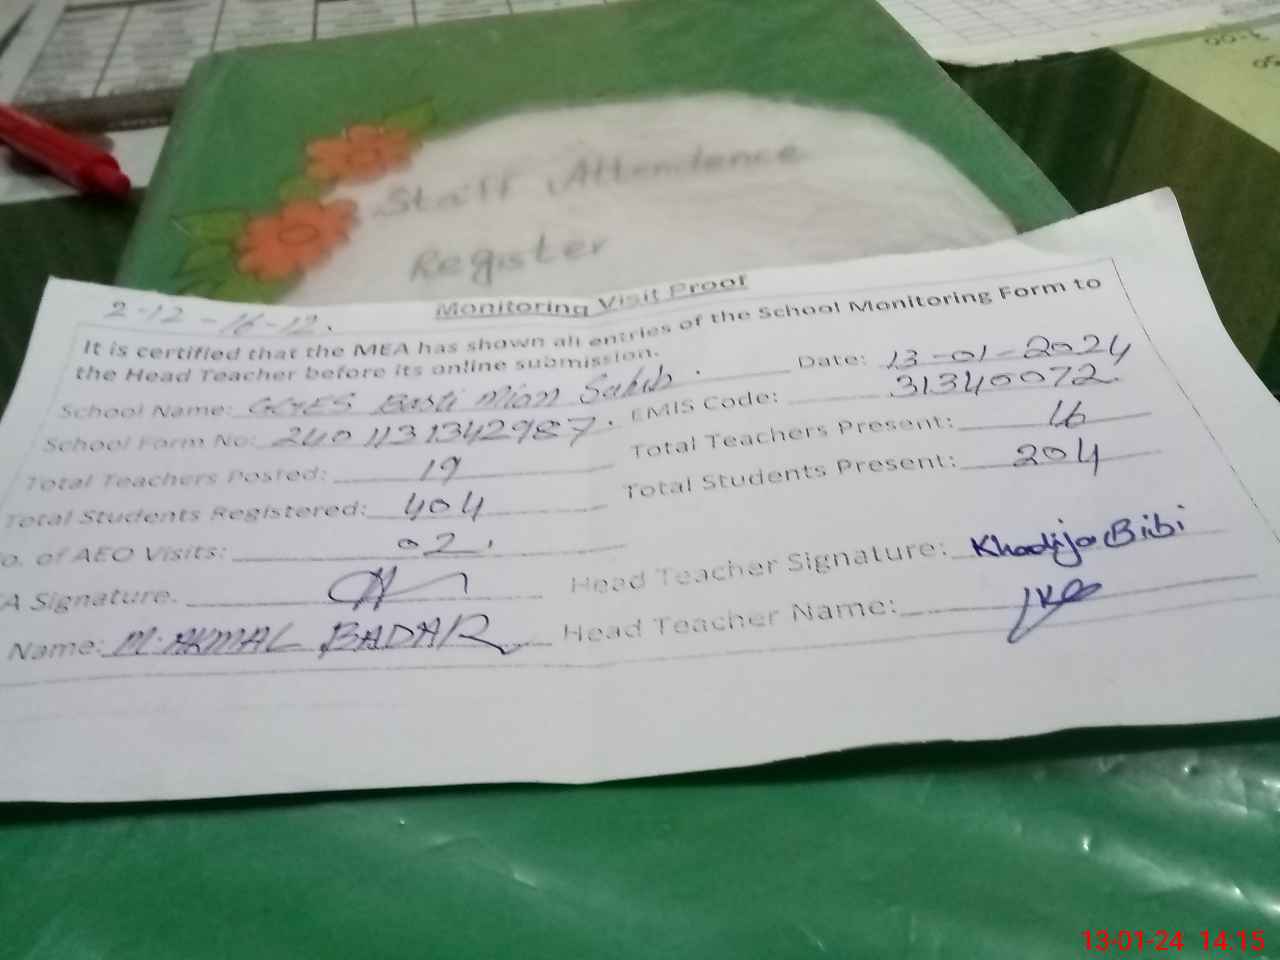 Staff Attendence
Register
2-12-16-12.
Monitoring Visit Proof
It is certified that the MEA has shown all entries of the School Monitoring Form to
the Head Teacher before its online submission.
Date: 13-01-2024
School Name: GGES Basti Mian Sahib.
EMIS Code: 31340072.
School Form No: 2401131342987.
Total Teachers Present: 16
Total Teachers Posted: 19
Total Students Present: 204
Total Students Registered: 404
o. of AEO Visits: 02.
Head Teacher Signature: Khadija Bibi
A Signature.
Head Teacher Name:
Name: M. AKMAL BADAR
13-01-24 14:15